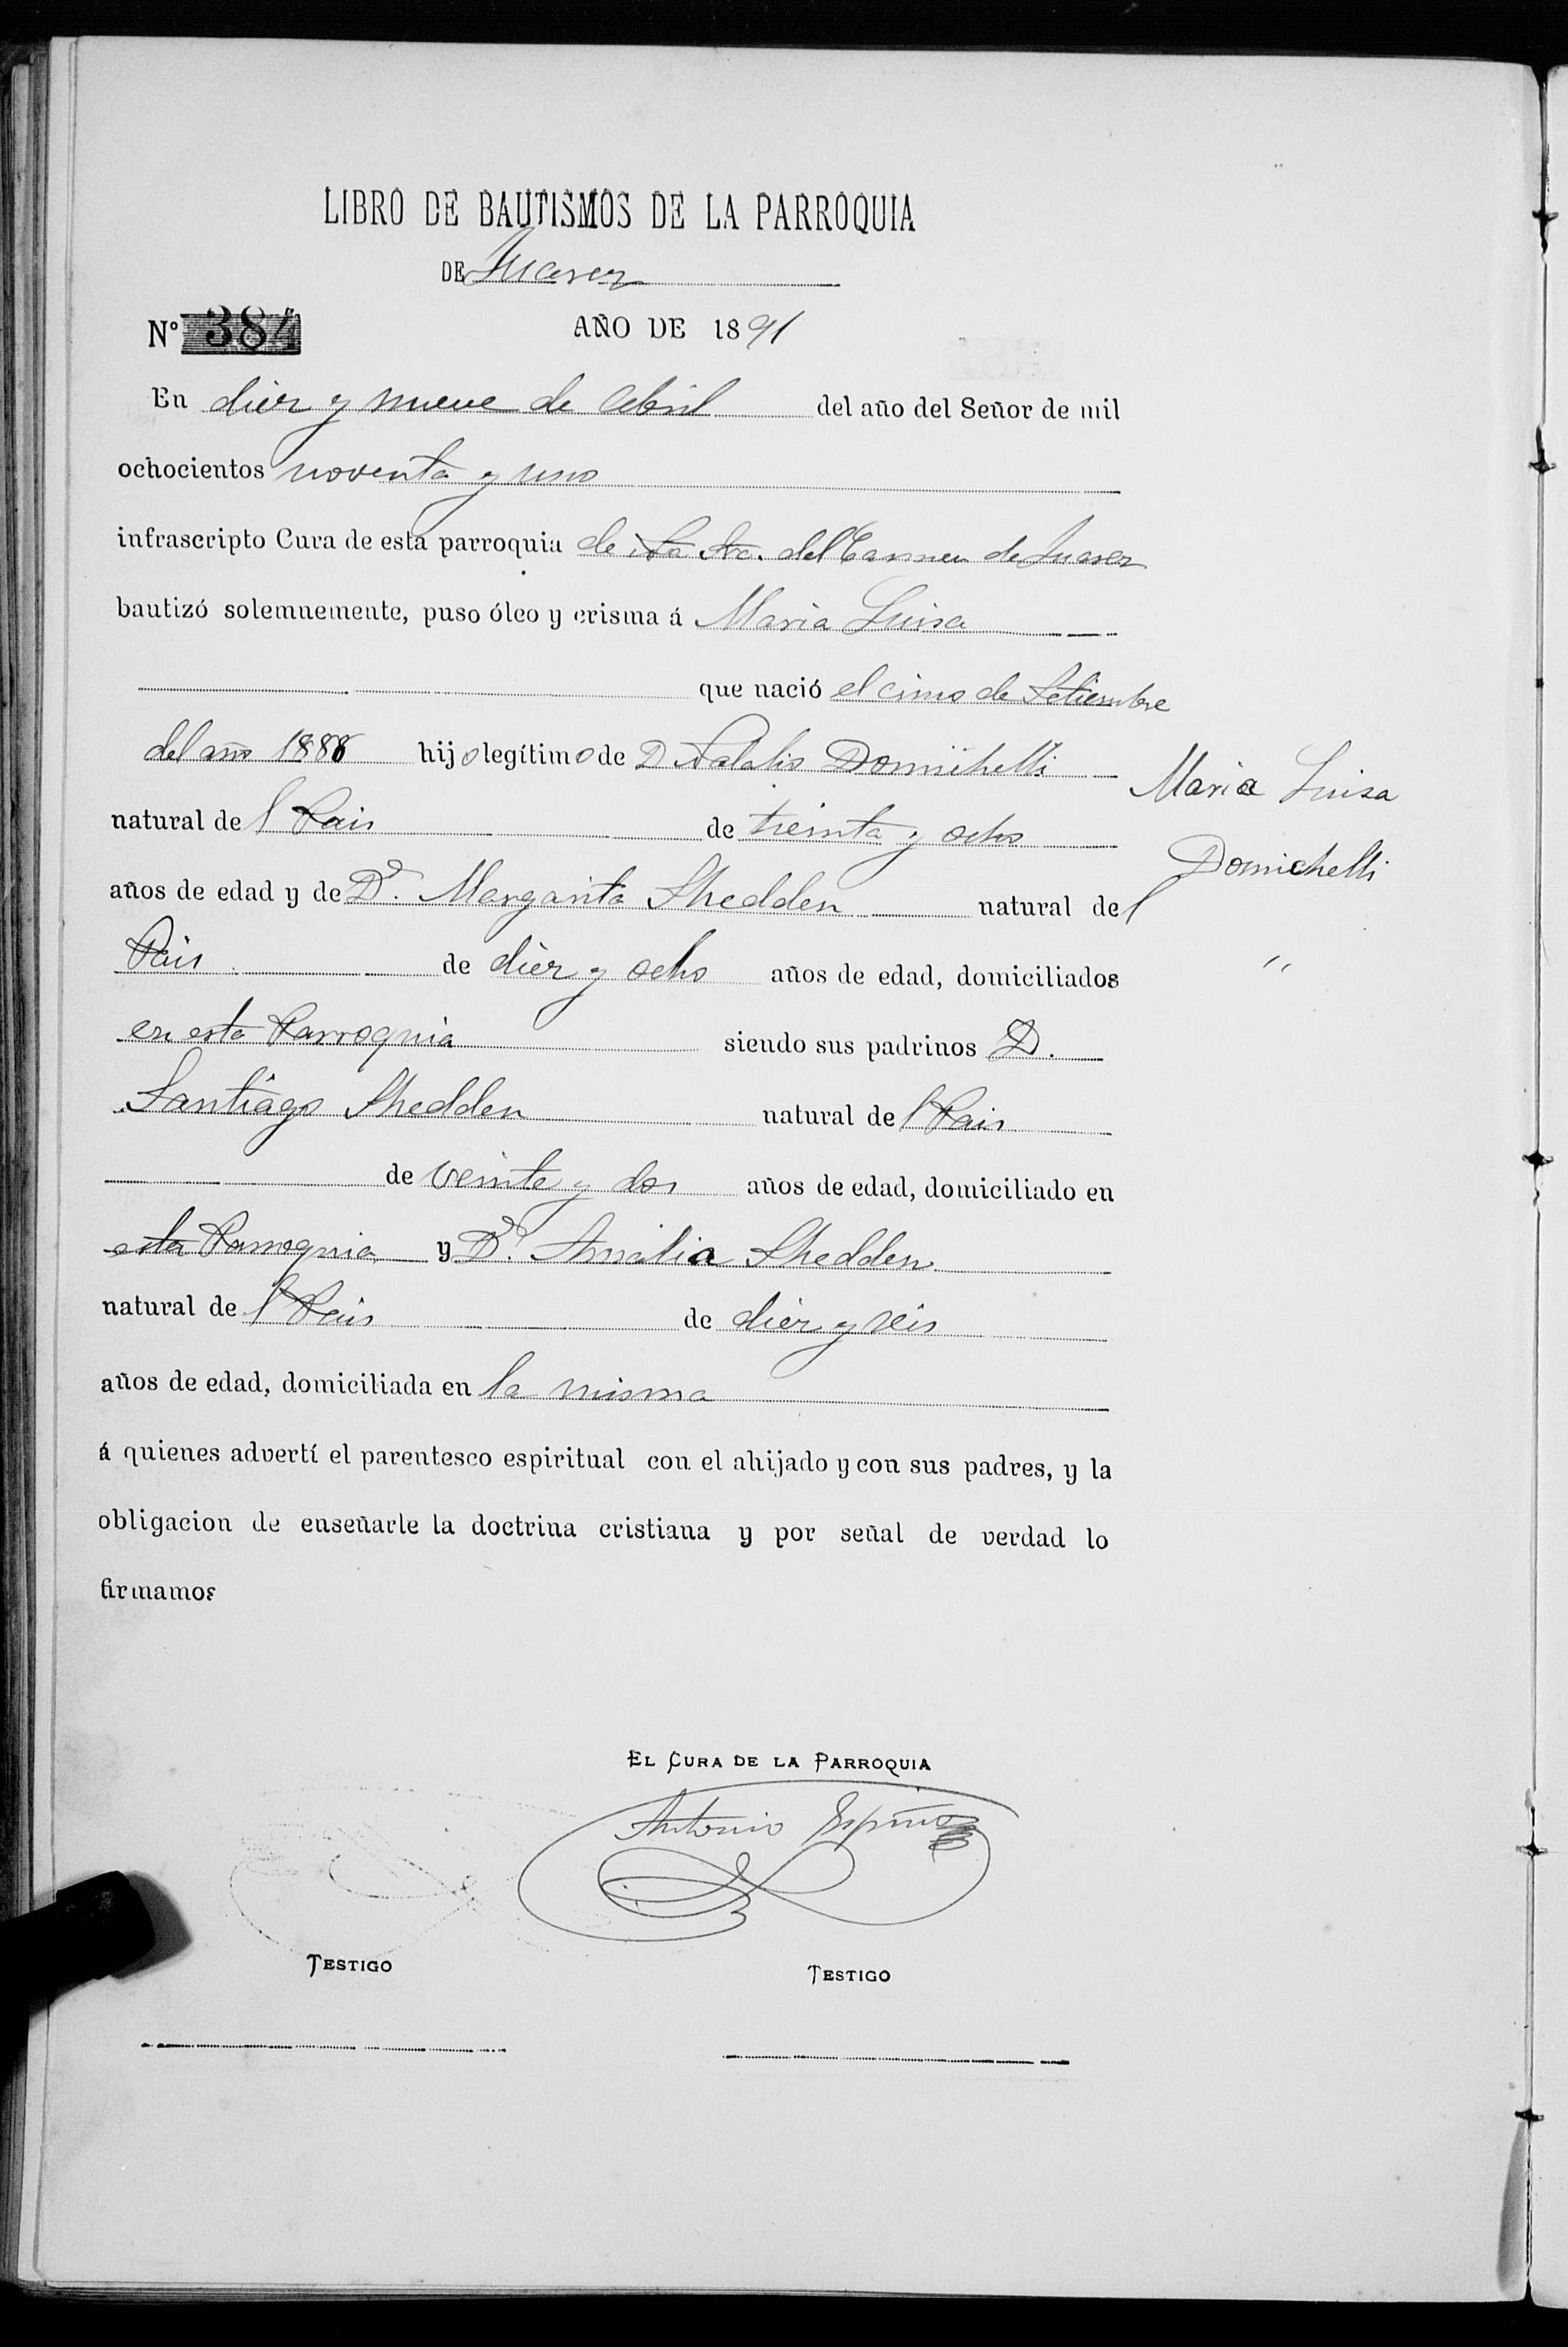 LIBRO DE BAUTISMOS DE LA PARROQUIA
DE Juarez
Nº 384 AÑO DE 1891
En diez y nueve de Abril del año del Señor de mil
ochocientos noventa y uno
infrascripto Cura de esta parroquia de Sra. del Carmen de Juarez
bautizó solemnemente, puso óleo y crisma á Maria Luisa
que nació el cinco de Setiembre
del año 1888 hijo legítimo de D Natalio Domichelli
Maria Luisa
natural del Pais de treinta y ocho
Domichelli
años de edad y de Dª. Margarita Shedden natural del
Pais de diez y ocho años de edad, domiciliados "
en esta Parroquia siendo sus padrinos D.
Santiago Shedden natural del Pais
de veinte y dos años de edad, domiciliado en
esta Parroquia y Dª. Amalia Shedden
natural del Pais de diez y seis
años de edad, domiciliada en la misma
á quienes advertí el parentesco espiritual con el ahijado y con sus padres, y la
obligacion de enseñarle la doctrina cristiana y por señal de verdad lo
firmamos
EL CURA DE LA PARROQUIA
Antonio
TESTIGO TESTIGO